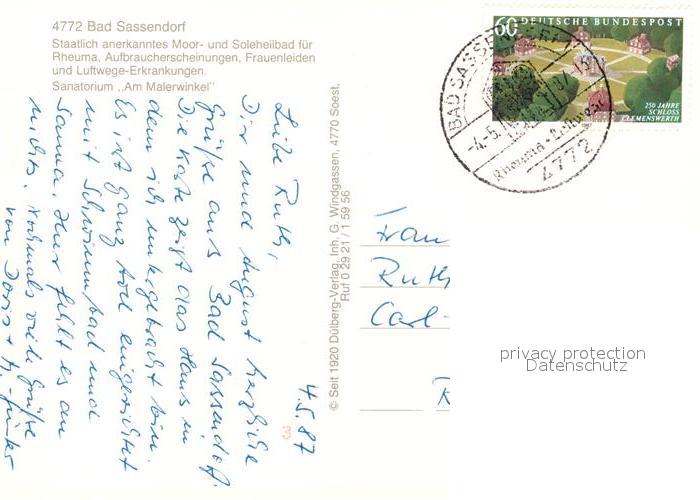 4772 Bad Sassendorf
Staatlich anerkanntes Moor- und Soleheilbad für
Rheuma, Aufbraucherscheinungen, Frauenleiden
und Luftwege-Erkrankungen.
Sanatorium „Am Malerwinkel"
4.5.87
Liebe Ruth,
Dir und August herzliche
Grüße aus Bad Sassendorf.
Die Karte zeigt das Haus in
dem ich untergebracht bin.
Es ist ganz toll eingerichtet
mit Schwimmbad und
Sauna. Hier fehlt es an
nichts. Nochmals viele Grüße
von Doris +
© Seit 1920 Dülberg-Verlag, Inh. G. Windgassen, 4770 Soest,
Ruf 0 29 21 / 1 59 56
60 DEUTSCHE BUNDESPOST
250 JAHRE
SCHLOSS
CLEMENSWERTH
BAD SASSENDORF
-4.-5.
4772
Frau
Ruth
Carl-
R
privacy protection
Datenschutz